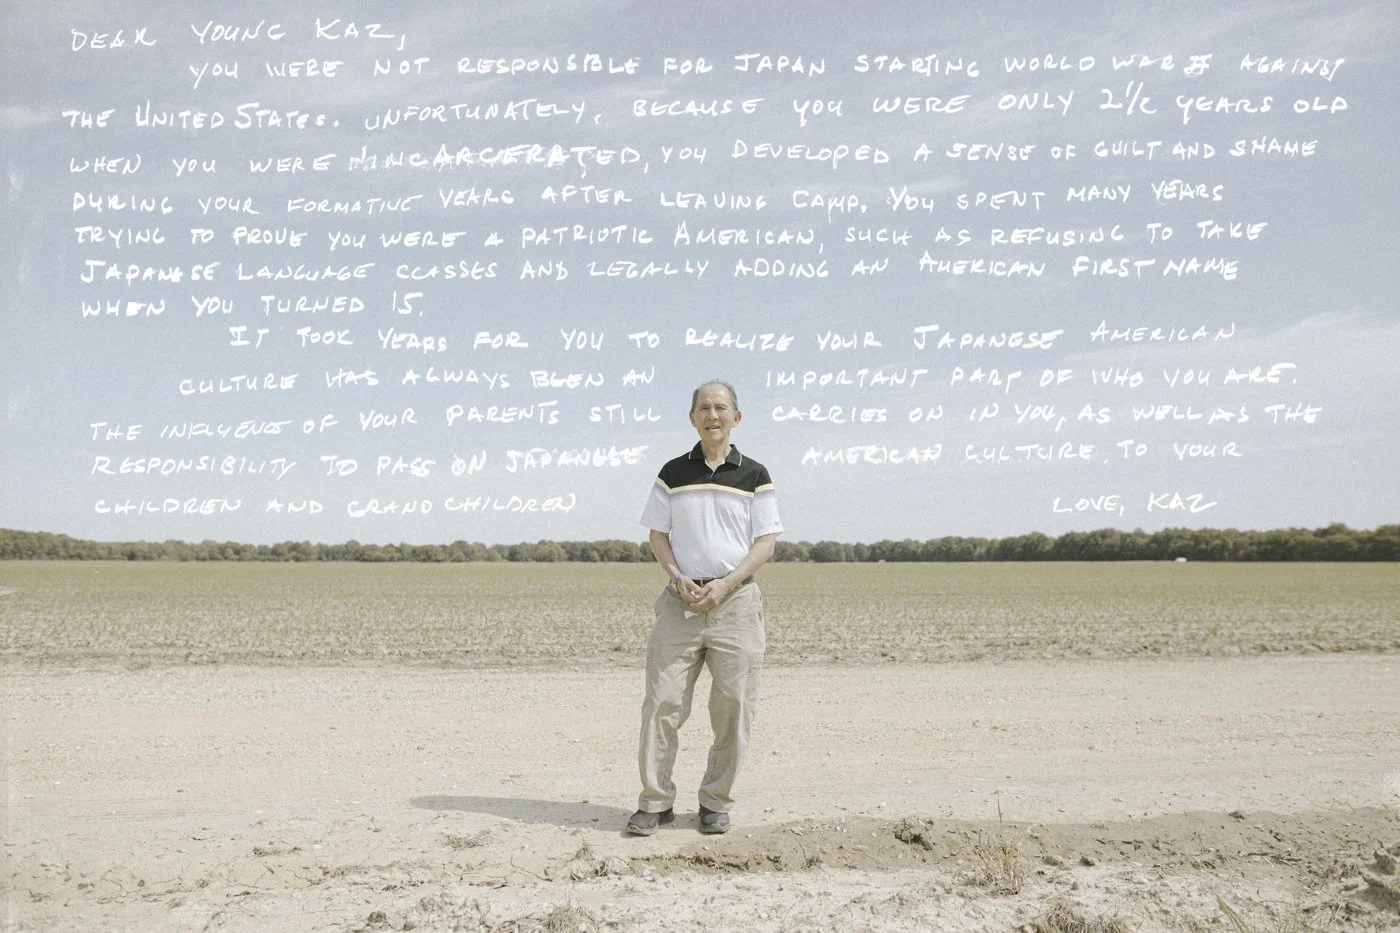 DEAR YOUNG KAZ,
YOU WERE NOT RESPONSIBLE FOR JAPAN STARTING WORLD WAR II AGAINST
THE UNITED STATES. UNFORTUNATELY, BECAUSE YOU WERE ONLY 2 1/2 YEARS OLD
WHEN YOU WERE INCARCERATED, YOU DEVELOPED A SENSE OF GUILT AND SHAME
DURING YOUR FORMATIVE YEARS AFTER LEAVING CAMP. YOU SPENT MANY YEARS
TRYING TO PROVE YOU WERE A PATRIOTIC AMERICAN, SUCH AS REFUSING TO TAKE
JAPANESE LANGUAGE CLASSES AND LEGALLY ADDING AN AMERICAN FIRST NAME
WHEN YOU TURNED 15.
IT TOOK YEARS FOR YOU TO REALIZE YOUR JAPANESE AMERICAN
CULTURE HAS ALWAYS BEEN AN IMPORTANT PART OF WHO YOU ARE.
THE INFLUENCE OF YOUR PARENTS STILL CARRIES ON IN YOU, AS WELL AS THE
RESPONSIBILITY TO PASS ON JAPANESE AMERICAN CULTURE. TO YOUR
CHILDREN AND GRAND CHILDREN LOVE, KAZ